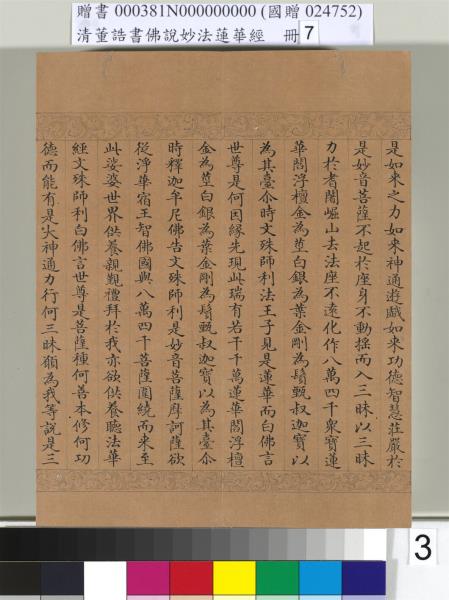 贈書 000381N000000000 (國贈 024752)
清董誥書佛說妙法蓮華經 冊 7
是如來之力如來神通遊戲如來功德智慧莊嚴於
是妙音菩薩不起於座身不動搖而入三昧以三昧
力於耆闍崛山去法座不遠化作八萬四千眾寶蓮
華閻浮檀金為莖白銀為葉金剛為鬚甄叔迦寶以
為其臺尒時文殊師利法王子見是蓮華而白佛言
世尊是何因緣先現此瑞有若干千萬蓮華閻浮檀
金為莖白銀為葉金剛為鬚甄叔迦寶以為其臺尒
時釋迦牟尼佛告文殊師利是妙音菩薩摩訶薩欲
從淨華宿王智佛國與八萬四千菩薩圍繞而來至
此娑婆世界供養親覲禮拜於我亦欲供養聽法華
經文殊師利白佛言世尊是菩薩種何善本修何功
德而能有是大神通力行何三昧願為我等說是三
3